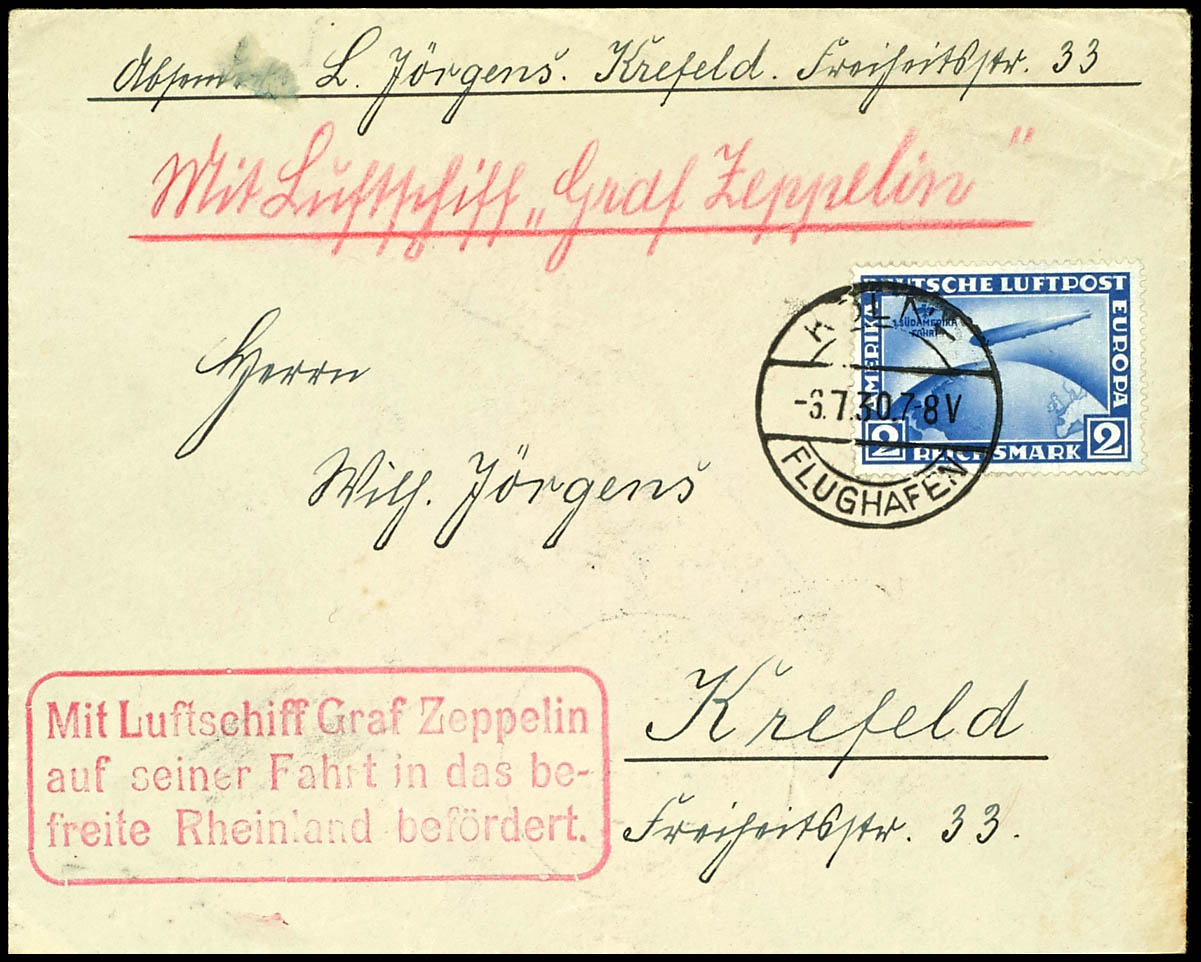 Absender L. Jörgens. Krefeld. Freiheitsstr. 33
Mit Luftschiff „Graf Zeppelin"
DEUTSCHE LUFTPOST
AMERIKA
EUROPA
1. SÜDAMERIKA
FAHRT
2 REICHSMARK 2
KÖLN
-6.7.30.7-8V
FLUGHAFEN
Herrn
Wilh. Jörgens
Krefeld
Freiheitsstr. 33.
Mit Luftschiff Graf Zeppelin
auf seiner Fahrt in das be-
freite Rheinland befördert.